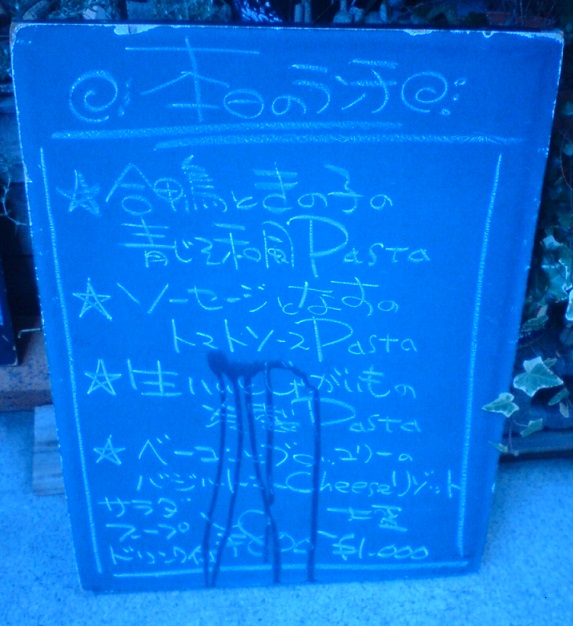 本日のランチ
☆合鴨ときの子の
青じそ和風Pasta
☆ソーセージとなすの
トマトソースPasta
☆生ハムとじゃがいもの
Pasta
☆ベーコンとブロッコリーの
Cheeseリゾット
サラダ
スープ
ドリンク付
¥1.000